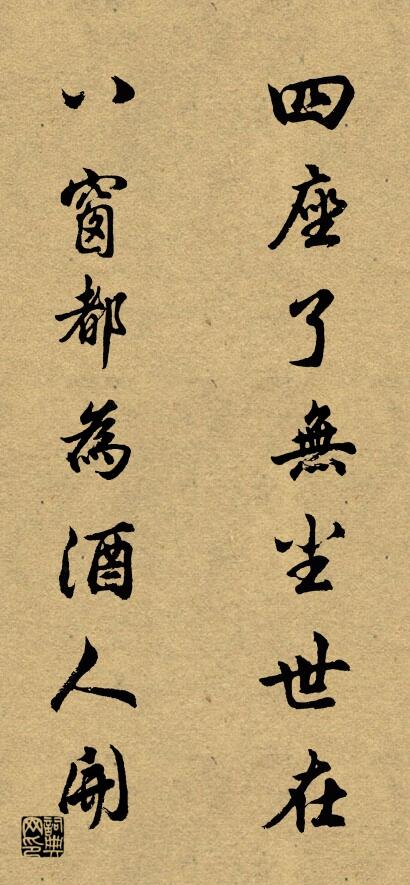 四座了無尘世在
八窗都為酒人開
詞典
网印